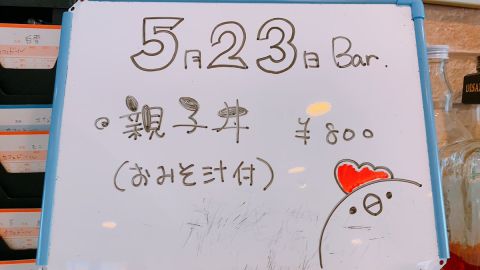 5月23日 Bar.
◎ 親子丼 ¥800
(おみそ汁付)